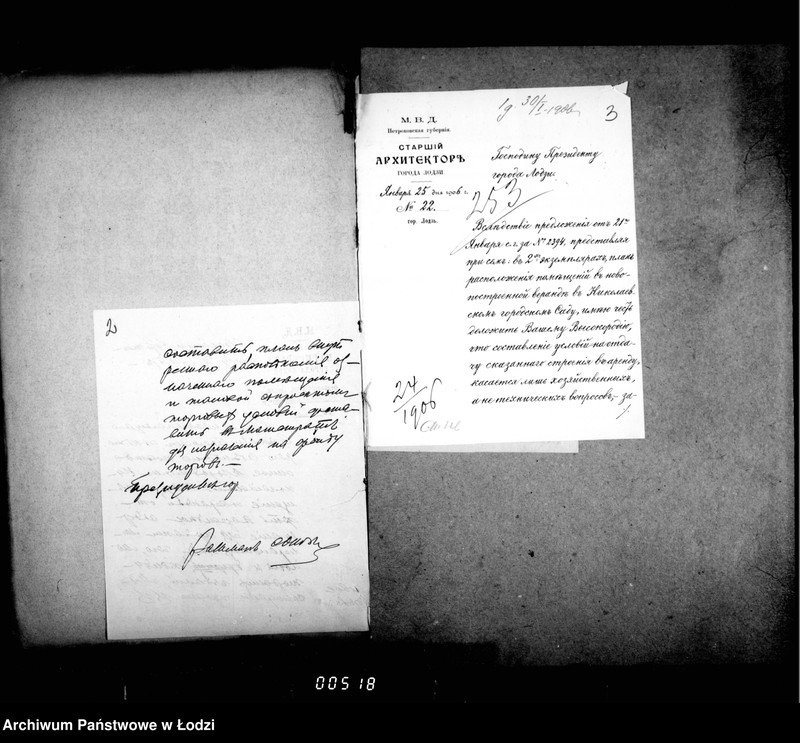 2
составить планъ внут
ренняго расположенія
значеннаго помещенія
и таковой с проектомъ
торговыхъ условій
въ Магистратъ
для направленія на
торговъ.—
Президентъ го
3
М. В. Д.
Петроковская губернія
СТАРШІЙ
АРХИТЕКТОРЪ
ГОРОДА ЛОДЗИ.
Января 25 дня 1906 г.
№ 22.
гор. Лодзь.
Господину Президенту
города Лодзи.
253
Вслѣдствіе предложенія отъ 21го
Января с.г. за № 2394, представляя
при семъ: въ 2хъ экземплярахъ, планъ
расположенія помѣщеній въ ново-
построенной верандѣ въ Николаев-
скомъ городскомъ Саду, имѣю честь
доложить Вашему Высокородію,
что составленіе условій на отда-
чу сказаннаго строенія въ аренду,
касается лишь хозяйственныхъ,
а не техническихъ вопросовъ,- за-
24
1906
00518
Archiwum Państwowe w Łodzi